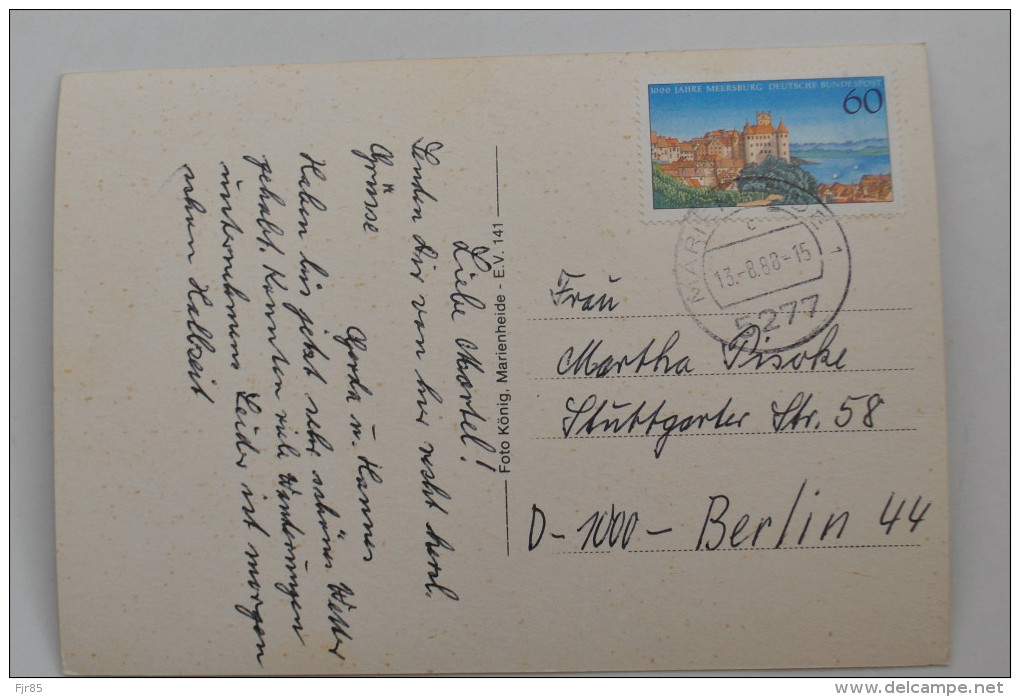 1000 JAHRE MEERSBURG DEUTSCHE BUNDESPOST
60
MARIE
1
13.-8.88-15
5277
Liebe Martel!
Senden Dir von hier recht herzl.
Grüsse
Gerda u. Hannes
Haben bis jetzt sehr schönes Wetter
gehabt. Konnten viele Wanderungen
unternehmen. Leider ist morgen
schon Halbzeit
Foto König, Marienheide - E.V. 141
Frau
Martha
Stuttgarter Str. 58
D-1000- Berlin 44
Fjr85
www.delcampe.net